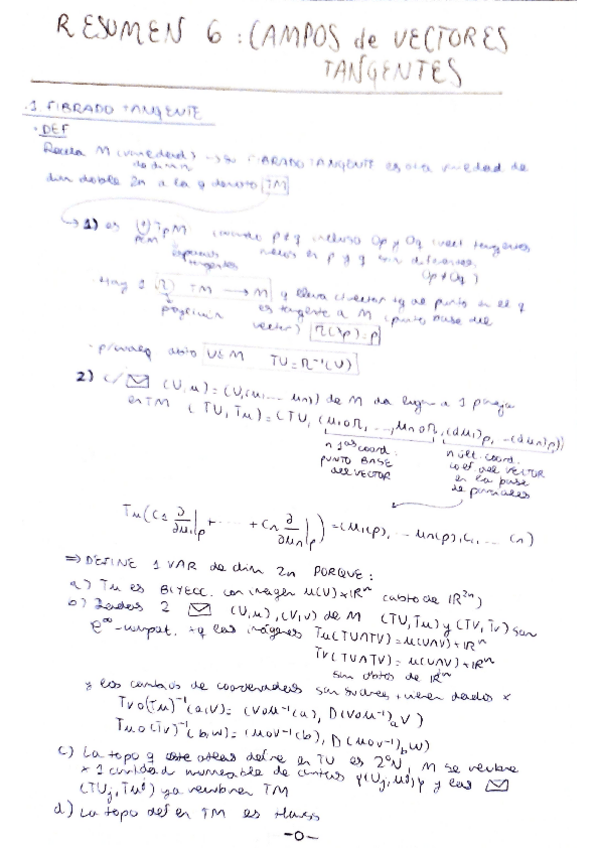 RESUMEN 6: CAMPOS de VECTORES
TANGENTES
.1 FIBRADO TANGENTE
· DEF
M (variedad) → su FIBRADO TANGENTE es otra variedad de
de dim n
dim doble 2n a la q denoto TM
↳ 1) es TpM cuando p≠q incluso Op y Oq (vect tangentes
p∈M
espacios
tangentes
nulos en p y q son diferentes
Op≠Oq)
Hay 1 π TM → M y lleva c/vector tg al punto en el q
proyección
es tangente a M (punto base del
vector) π(vp)=p
· abto U⊆M TU=π⁻¹(U)
2) c/ ✉ (U,u)=(U,(u₁...,un)) de M da lugar a 1 pareja
en TM (TU,Tu)=(TU,(u₁∘π,...,un∘π,(du₁)p,...(dun)p))
n 1as coord:
PUNTO BASE
del VECTOR
n últ. coord.
coef del VECTOR
en la base
de parciales
Tu(c₁ ∂/∂u₁|p + ····· + cn ∂/∂un|p) = (u₁(p),...un(p),c₁,...cn)
⇒ DEFINE 1 VAR de dim 2n PORQUE:
a) Tu es BIYECC. con imagen u(U)×ℝⁿ (abto de ℝ²ⁿ)
b) Dadas 2 ✉ (U,u),(V,v) de M (TU,Tu) y (TV,Tv) son
C^∞-compat. +q las imágenes Tu(TU∩TV)=u(U∩V)×ℝⁿ
Tv(TU∩TV)=v(U∩V)×ℝⁿ
son abtos de ℝ²ⁿ
y los cambios de coordenadas son suaves, vienen dados x
Tv∘(Tu)⁻¹(a,v)=(v∘u⁻¹(a), D(v∘u⁻¹)ₐv)
Tu∘(Tv)⁻¹(b,w)=(u∘v⁻¹(b), D(u∘v⁻¹)_b w)
c) La topo q este atlas define en TU es 2ºN, M se recubre
x 1 cantidad numerable de cartas y las ✉
(TUj,Tuj) ya recubren TM
d) La topo def en TM es
-0-